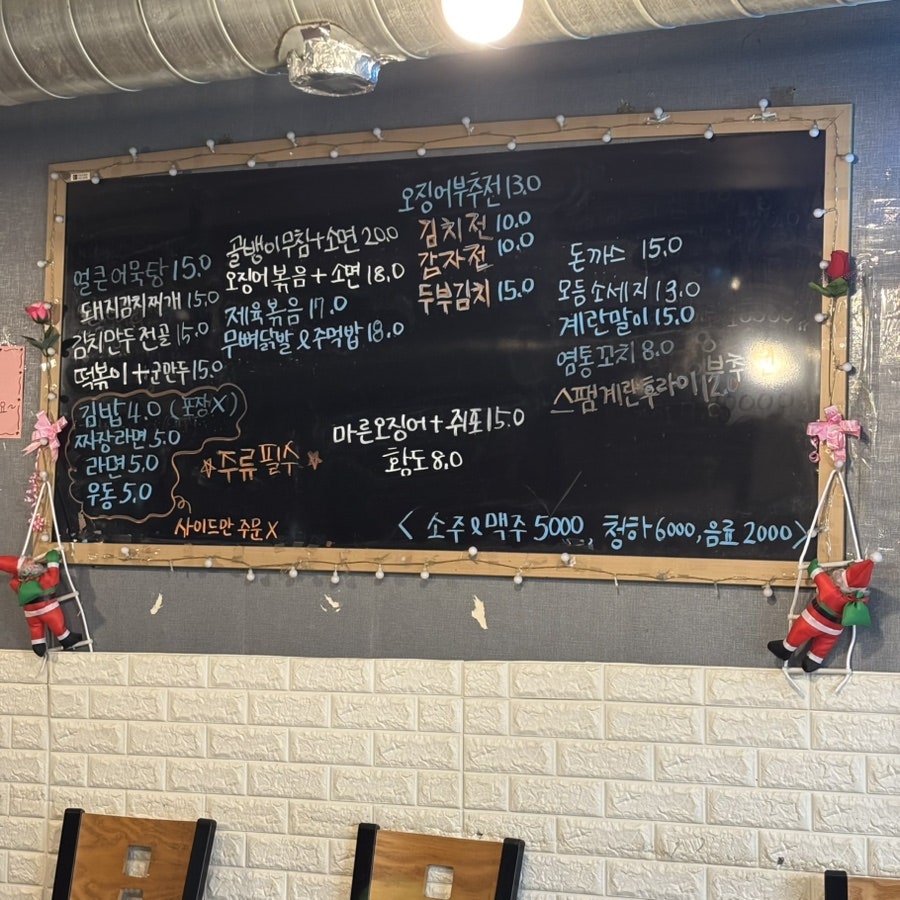 얼큰어묵탕 15.0
돼지김치찌개 15.0
김치만두전골 15.0
떡볶이+군만두 15.0
김밥 4.0 (포장X)
짜장라면 5.0
라면 5.0
우동 5.0
주류필수
사이드만 주문 X
골뱅이무침+소면 20.0
오징어볶음+소면 18.0
제육볶음 17.0
무뼈닭발 & 주먹밥 18.0
오징어부추전 13.0
김치전 10.0
감자전 10.0
두부김치 15.0
마른오징어+쥐포 15.0
황도 8.0
돈까스 15.0
모듬소세지 13.0
계란말이 15.0
염통꼬치 8.0
스팸계란후라이 12.0
<소주&맥주 5000, 청하 6000, 음료 2000>